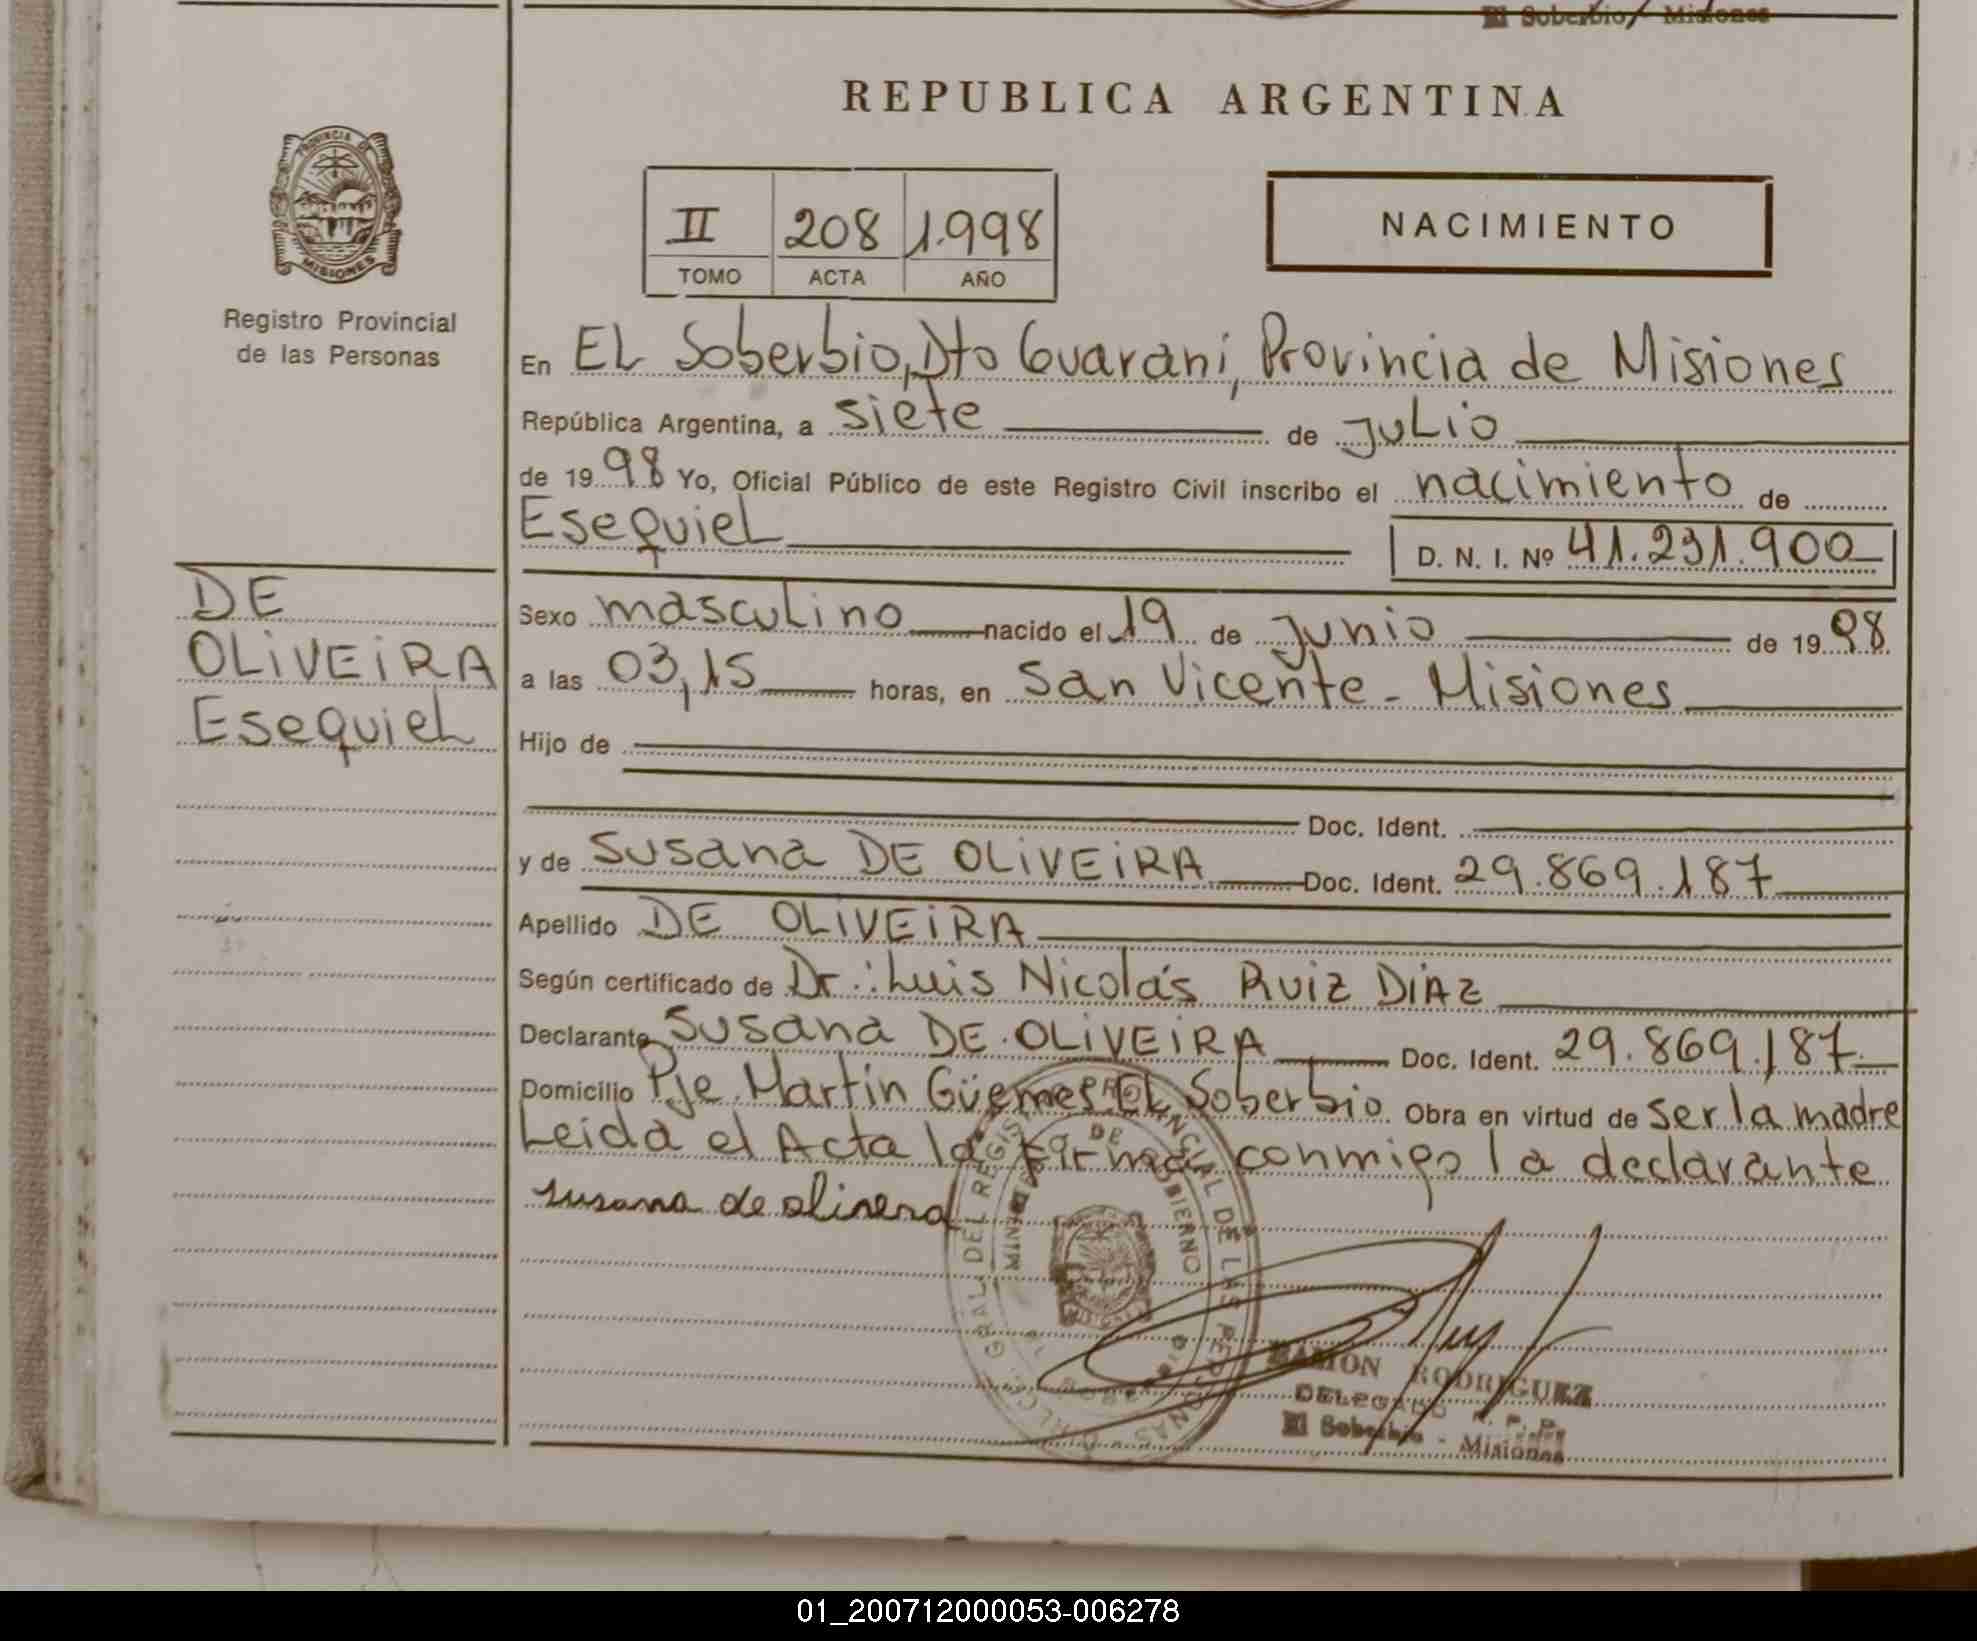 El Soberbio / Misiones
REPUBLICA ARGENTINA
PROVINCIA DE
MISIONES
Registro Provincial
de las Personas
II 208 1.998
TOMO ACTA AÑO
NACIMIENTO
En EL Soberbio, Dto Guarani, Provincia de Misiones
República Argentina, a siete de juLio
de 1998 Yo, Oficial Público de este Registro Civil inscribo el nacimiento de
EsequieL
D. N. I. Nº 41.231.900
DE
OLiVEiRA
EsequieL
Sexo mascuLino nacido el 19 de junio de 1998
a las 03,15 horas, en San Vicente - Misiones
Hijo de
Doc. Ident.
y de Susana DE OLiVEiRA Doc. Ident. 29.869.187
Apellido DE OLiVEiRA
Según certificado de Dr.: Luis Nicolás Ruiz DiAz
Declarante Susana DE OLiVEiRA Doc. Ident. 29.869.187
Domicilio Pje. Martín Güemes EL Soberbio Obra en virtud de ser la madre
Leida el Acta la firma conmigo la declarante
susana de olivera
MINISTERIO DE GOBIERNO
GRAL. DEL REGISTRO PROVINCIAL DE LAS PERSONAS
MISIONES
RAMON RODRIGUEZ
DELEGADO R. P. P.
El Soberbio - Misiones
01_200712000053-006278